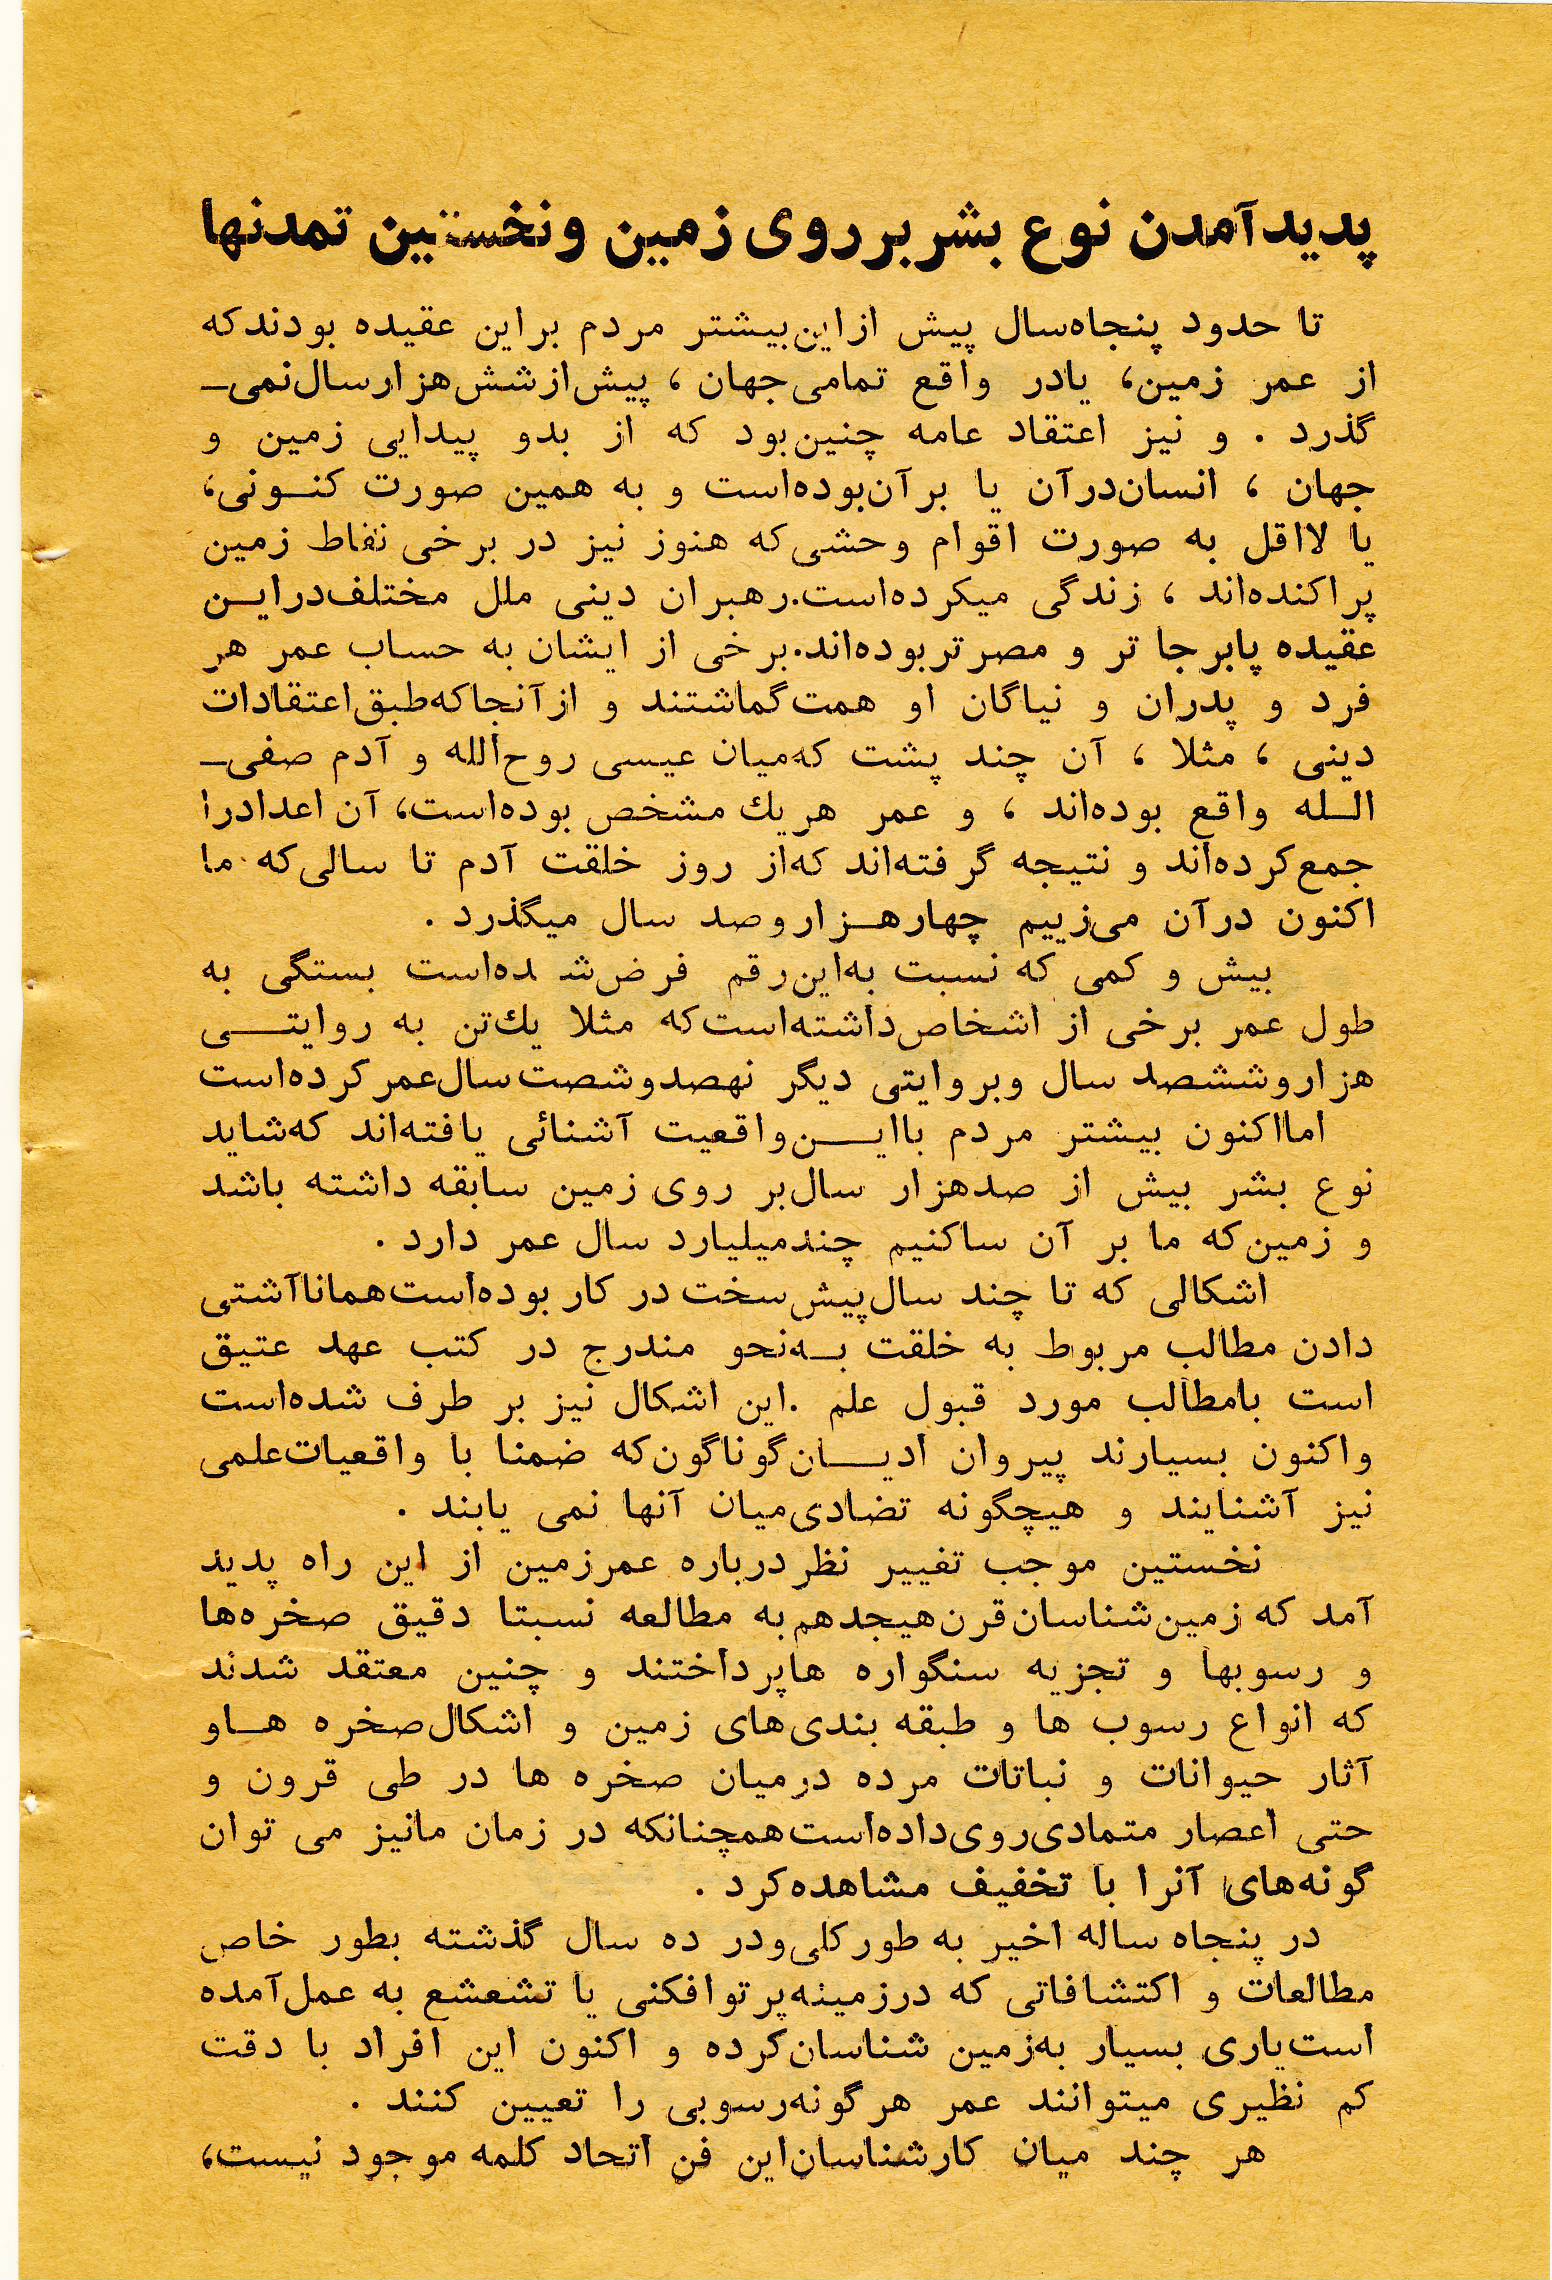 پدیدآمدن نوع بشر بر روی زمین و نخستین تمدنها
تا حدود پنجاه سال پیش از این بیشتر مردم براین عقیده بودند که
از عمر زمین، یا در واقع تمامی جهان ، پیش از شش هزار سال نمی‌ـ
گذرد . و نیز اعتقاد عامه چنین بود که از بدو پیدایی زمین و
جهان ، انسان در آن یا بر آن بوده است و به همین صورت کنـونی،
یا لااقل به صورت اقوام وحشی که هنوز نیز در برخی نقاط زمین
پراکنده‌اند ، زندگی میکرده‌است. رهبران دینی ملل مختلف در ایـن
عقیده پابرجا تر و مصر تر بوده‌اند. برخی از ایشان به حساب عمر هر
فرد و پدران و نیاگان او همت گماشتند و از آنجا که طبق اعتقادات
دینی ، مثلا ، آن چند پشت که میان عیسی روح الله و آدم صفی‌ـ
الـله واقع بوده‌اند ، و عمر هر یك مشخص بوده‌است، آن اعداد را
جمع کرده‌اند و نتیجه گرفته‌اند که از روز خلقت آدم تا سالی که ما
اکنون در آن می‌زییم چهار هـزار و صد سال میگذرد .
بیش و کمی که نسبت به این رقم فرض شده‌است بستگی به
طول عمر برخی از اشخاص داشته‌است که مثلا یك تن به روایتـی
هزار و ششصد سال و بروایتی دیگر نهصد و شصت سال عمر کرده‌است
اما اکنون بیشتر مردم با ایـن واقعیت آشنائی یافته‌اند که شاید
نوع بشر بیش از صد هزار سال بر روی زمین سابقه داشته باشد
و زمین که ما بر آن ساکنیم چند میلیارد سال عمر دارد .
اشکالی که تا چند سال پیش سخت در کار بوده‌است همانا آشتی
دادن مطالب مربوط به خلقت بـه نحو مندرج در کتب عهد عتیق
است با مطالب مورد قبول علم . این اشکال نیز بر طرف شده‌است
و اکنون بسیارند پیروان ادیـان گوناگون که ضمنا با واقعیات علمی
نیز آشنایند و هیچگونه تضادی میان آنها نمی یابند .
نخستین موجب تغییر نظر درباره عمر زمین از این راه پدید
آمد که زمین شناسان قرن هیجدهم به مطالعه نسبتا دقیق صخره‌ها
و رسوبها و تجزیه سنگواره ها پرداختند و چنین معتقد شدند
که انواع رسوب ها و طبقه بندی های زمین و اشکال صخره هـا و
آثار حیوانات و نباتات مرده در میان صخره ها در طی قرون و
حتی اعصار متمادی روی داده‌است همچنانکه در زمان ما نیز می توان
گونه‌های آنرا با تخفیف مشاهده کرد .
در پنجاه ساله اخیر به طور کلی و در ده سال گذشته بطور خاص
مطالعات و اکتشافاتی که در زمینه پرتوافکنی یا تشعشع به عمل آمده
است یاری بسیار به زمین شناسان کرده و اکنون این افراد با دقت
کم نظیری میتوانند عمر هر گونه رسوبی را تعیین کنند .
هر چند میان کارشناسان این فن اتحاد کلمه موجود نیست،